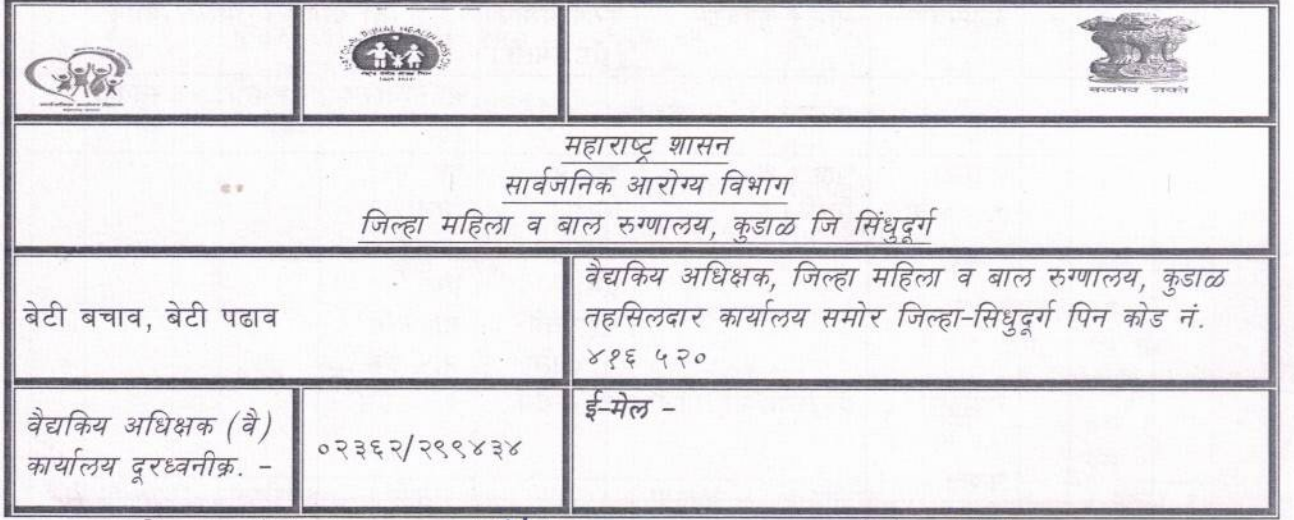 NATIONAL RURAL HEALTH MISSION
सत्यमेव जयते
महाराष्ट्र शासन
सार्वजनिक आरोग्य विभाग
जिल्हा महिला व बाल रुग्णालय, कुडाळ जि सिंधुदूर्ग
बेटी बचाव, बेटी पढाव
वैद्यकिय अधिक्षक, जिल्हा महिला व बाल रुग्णालय, कुडाळ
तहसिलदार कार्यालय समोर जिल्हा-सिधुदूर्ग पिन कोड नं.
४१६ ५२०
वैद्यकिय अधिक्षक (वै)
कार्यालय दूरध्वनीक्र. -
०२३६२/२९९४३४
ई-मेल -